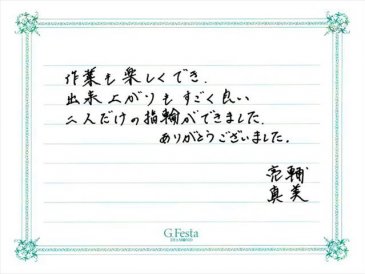 作業も楽しくでき、
出来上がりもすごく良い
二人だけの指輪ができました。
ありがとうございました。
亮輔
真美
G.Festa